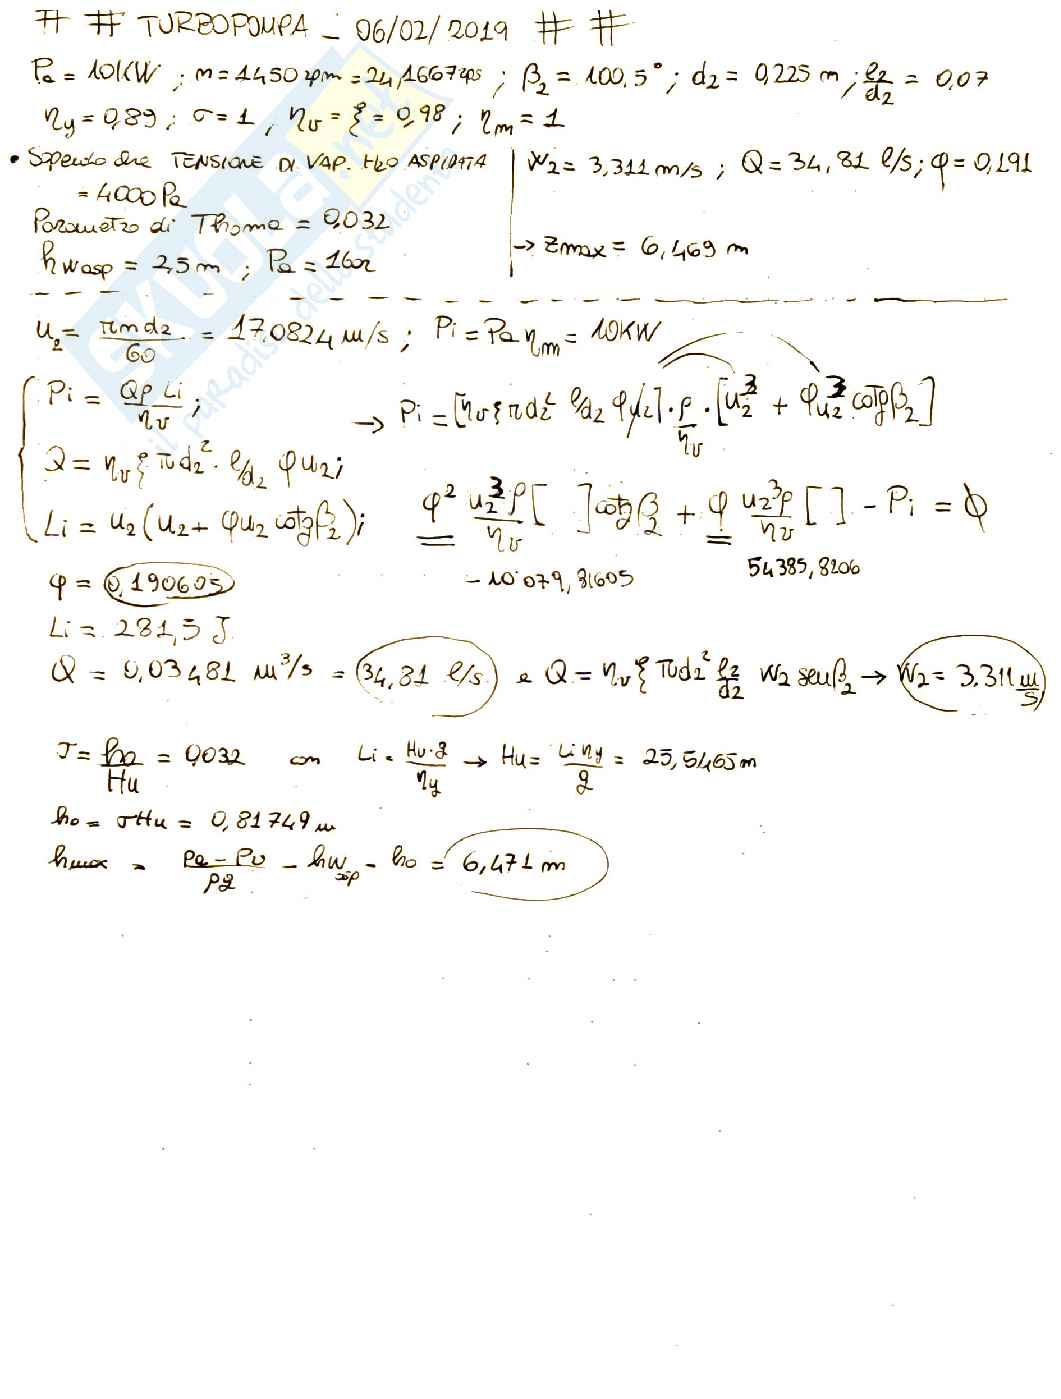 # # TURBOPOMPA - 06/02/2019 # #
Pa = 10KW ; n = 1450 rpm = 24,1667 rps ; β2 = 100,5° ; d2 = 0,225 m ; ℓ2/d2 = 0,07
ηy = 0,89 ; σ = 1 ; ηv = ξ = 0,98 ; ηm = 1
• Sapendo che TENSIONE DI VAP. H2O ASPIRATA = 4000 Pa
Parametro di Thoma = 0,032
hwasp = 2,5 m ; Pa = 1 bar
W2 = 3,311 m/s ; Q = 34,81 ℓ/s ; φ = 0,191
→ Zmax = 6,469 m
u2 = πnd2/60 = 17,0824 m/s ; Pi = Pa ηm = 10KW
Pi = QρLi/ηv ;
→ Pi = [ηv ξ πd2² ℓ/d2 φu2] · ρ/ηv · [u2³ + φu2³ cotgβ2]
Q = ηv ξ πd2² · ℓ/d2 φu2 ;
Li = u2(u2 + φu2 cotgβ2) ;
φ² u2³ρ/ηv [ ] cotgβ2 + φ u2³ρ/ηv [ ] - Pi = 0
-10'079,81605
54385,8206
φ = 0,190605
Li = 281,5 J
Q = 0,03481 m³/s = 34,81 ℓ/s e Q = ηv ξ πd2² ℓ2/d2 W2 senβ2 → W2 = 3.311 m/s
σ = ho/Hu = 0,032 con Li = Hu·g/ηy → Hu = Li ηy/g = 25,5465 m
ho = σHu = 0,81749 m
hmax = Pa - Pv/ρg - hwasp - ho = 6,471 m
SKUOLA.net
il paradiso dello studente